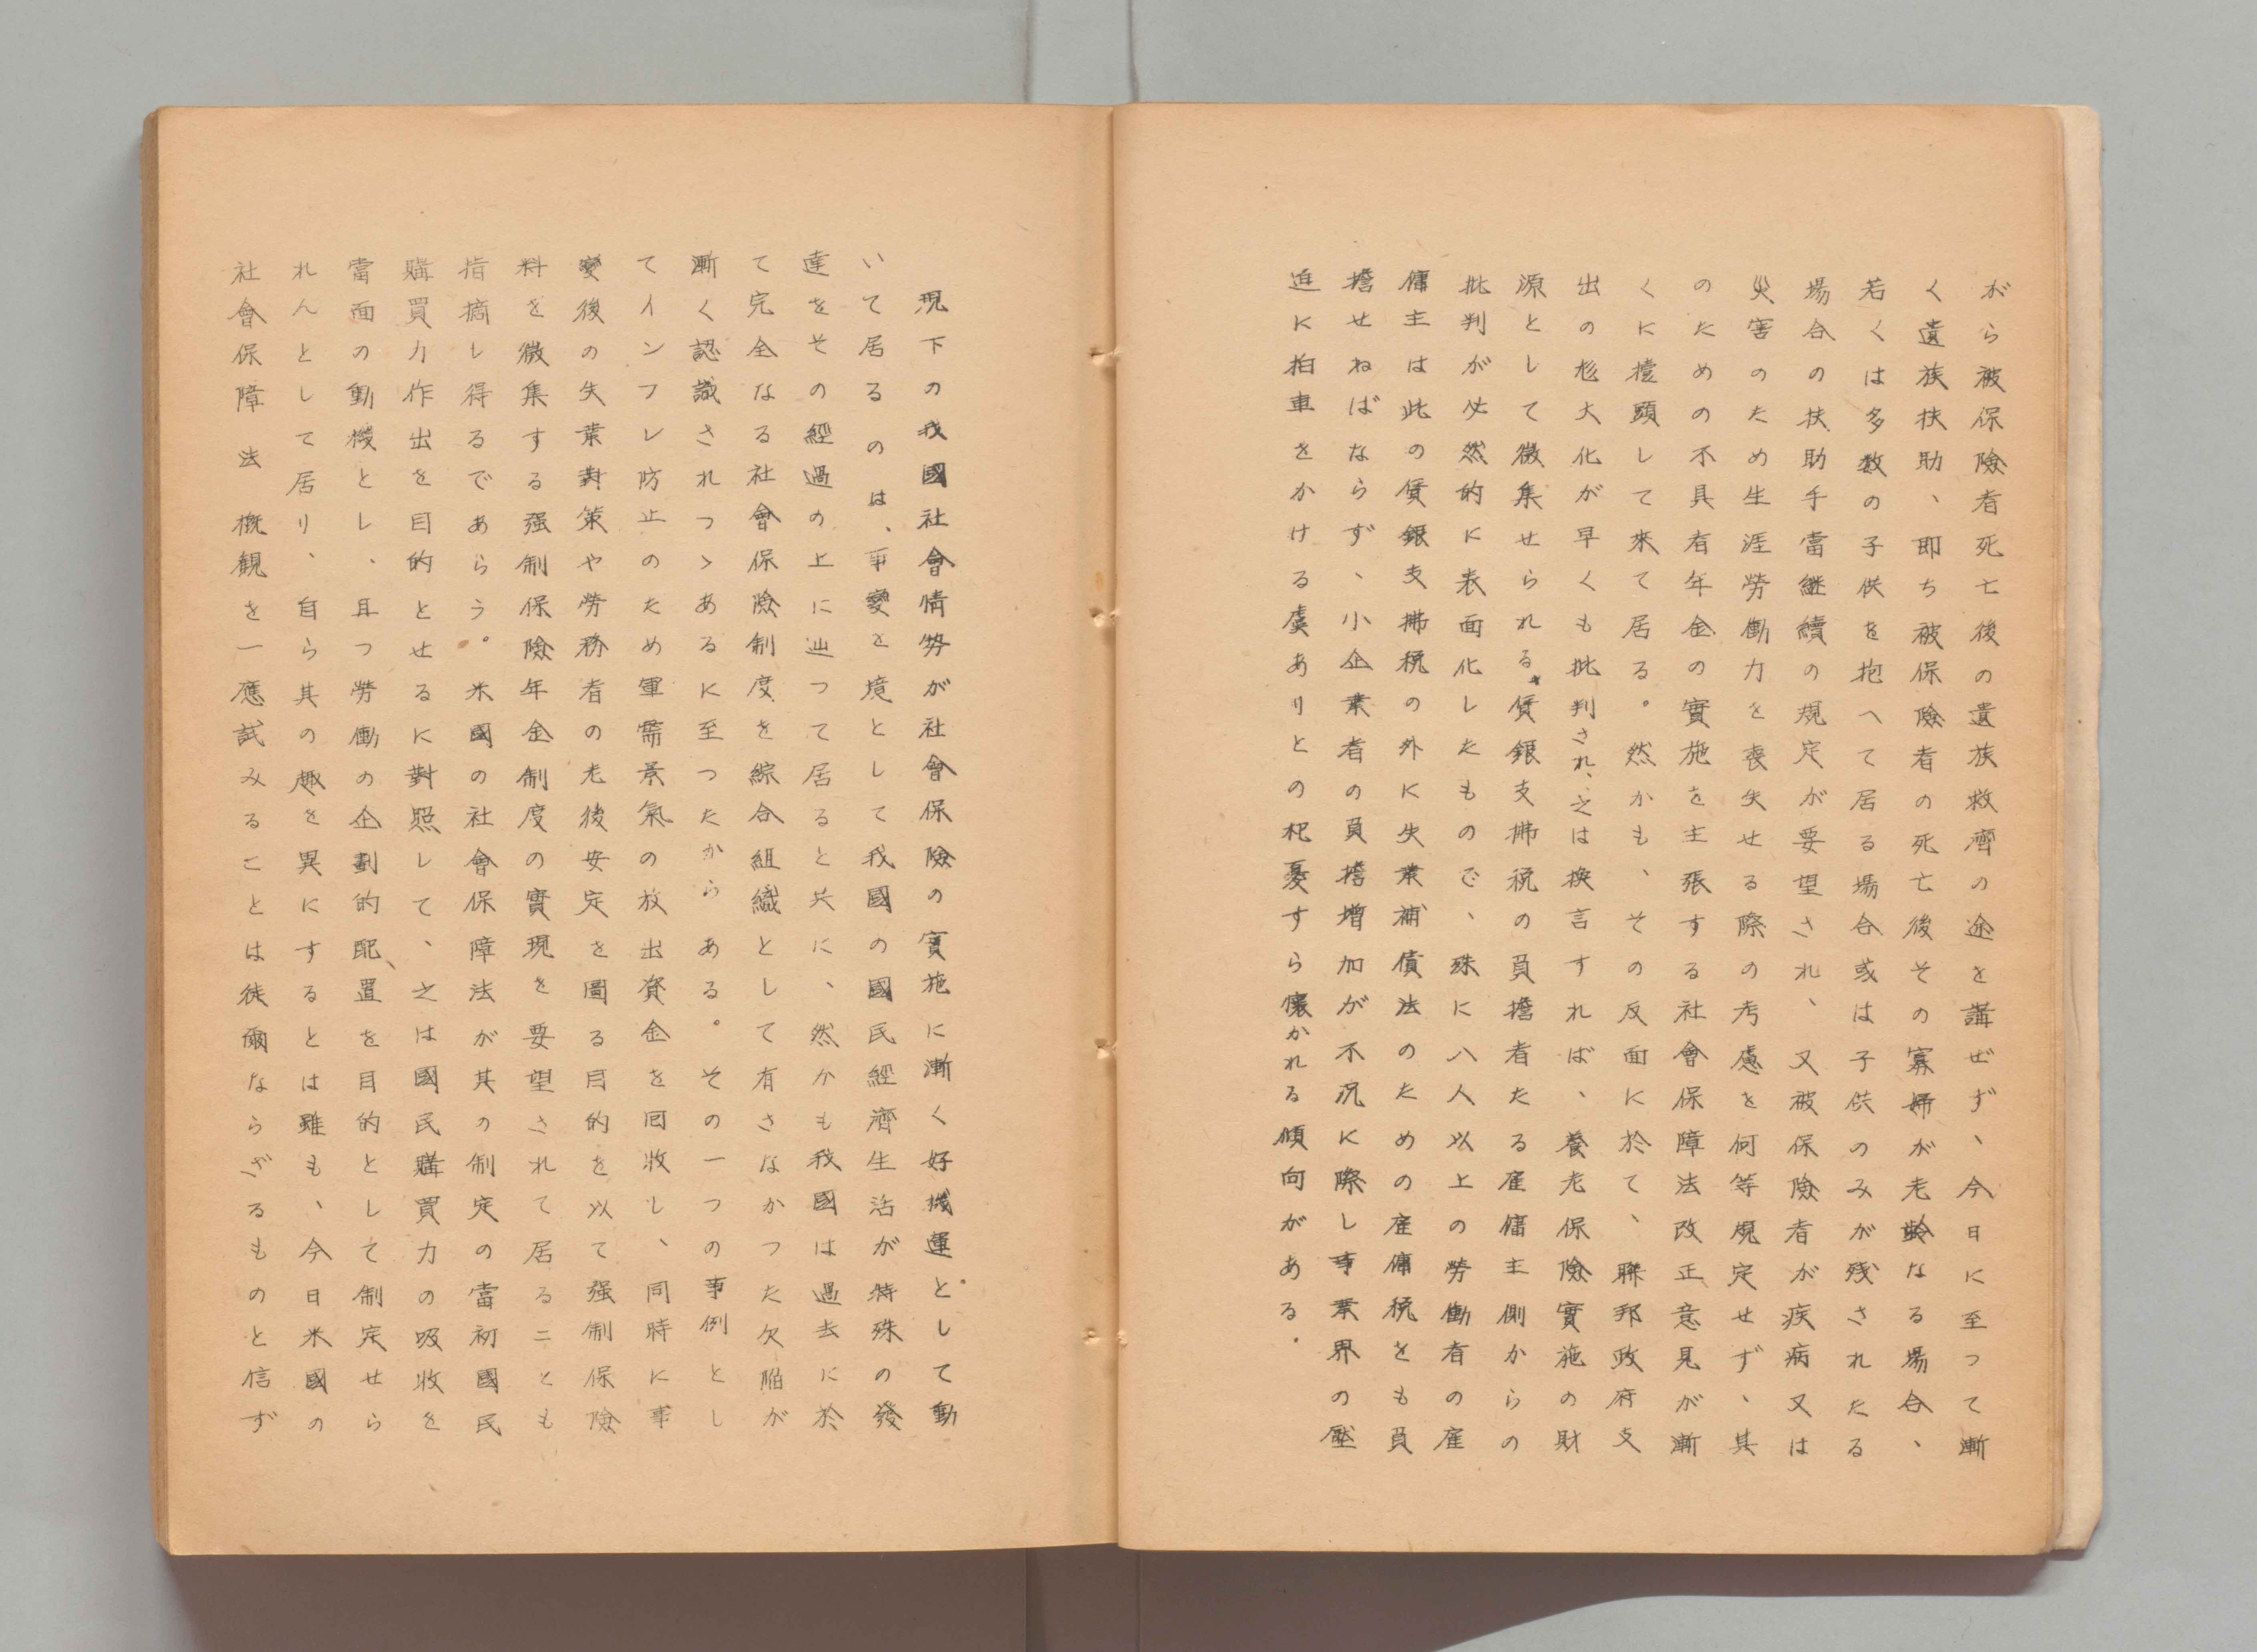 がら被保險者死亡後の遺族救濟の途を講ぜず、今日に至って漸
く遺族扶助、即ち被保險者の死亡後その寡婦が老齡なる場合、
若くは多数の子供を抱へて居る場合或は子供のみが残されたる
場合の扶助手當継續の規定が要望され、又被保險者が疾病又は
災害のため生涯勞働力を喪失せる際の考慮を何等規定せず、其
のための不具者年金の實施を主張する社會保障法改正意見が漸
くに擡頭して來て居る。然かも、その反面に於て、聯邦政府支
出の尨大化が早くも批判され、之は換言すれば、養老保險實施の財
源として徴集せられる賃銀支拂税の負擔者たる雇傭主側からの
批判が必然的に表面化したもので、殊に八人以上の勞働者の雇
傭主は此の賃銀支拂税の外に失業補償法のための雇傭税をも負
擔せねばならず、小企業者の負擔増加が不況に際し事業界の壓
迫に拍車をかける虞ありとの杞憂すら懐かれる傾向がある.
現下の我國社會情勢が社會保險の實施に漸く好機運として動
いて居るのは、事變を境として我國の國民經濟生活が特殊の發
達をその經過の上に辿って居ると共に、然かも我國は過去に於
て完全なる社會保險制度を綜合組織として有さなかった欠陥が
漸く認識されつゝあるに至つたからある。その一つの事例とし
てインフレ防止のため軍需景氣の放出資金を回收し、同時に事
變後の失業對策や勞務者の老後安定を圖る目的を以て强制保險
料を徴集する强制保險年金制度の實現を要望されて居ることも
指摘し得るであらう。米國の社會保障法が其の制定の當初國民
購買力作出を目的とせるに對照して、之は國民購買力の吸收を
當面の動機とし、且つ勞働の企劃的配置を目的として制定せら
れんとして居り、自ら其の趣を異にするとは雖も、今日米國の
社會保障法概観を一應試みることは徒爾ならざるものと信ず